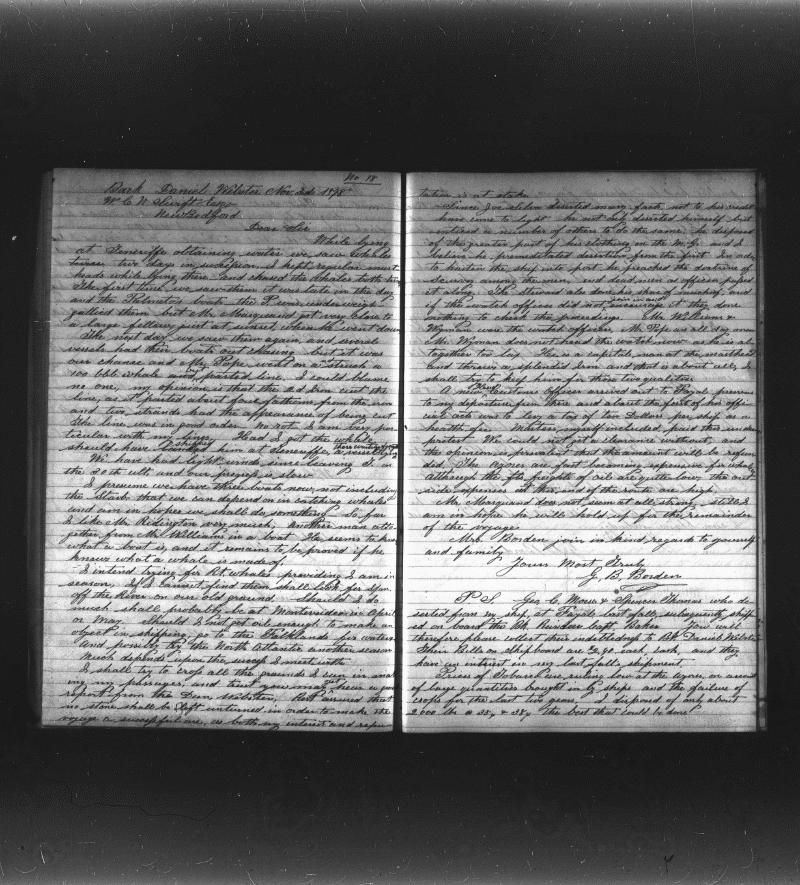 No 18
Bark Daniel Webster Nov 2d 1878
W. C. N. Swift Esq
New Bedford
Dear Sir
While lying
at Teneriffe obtaining water we saw whales
twice two days in succession. I kept regular mast
heads while lying there and chased the whales both times
The first time we saw them it was late in the day
and the Palmetto's boats, the P. was under weigh
gallied them but Mr Marquand got very close to
a large fellow just at sunset when he went down
The next day we saw them again, and several
vessels had their boats out chasing but it was
our chance and Mr Pope went on & struck a
100 bbl whale and parted line. I could blame
no one, my opinion is that the 2d iron cut the
line, as it parted about four fathoms from the iron
and two strands had the appearance of being cut
The line was in good order no rot I am very par
ticular with my lines. Had I got the whale
should have shipped him at Teneriffe
We have had light winds since leaving T. on
the 20th ult and our progress is slow
I presume we have three boats now not including
the Starb that we can depend on in catching whales
and am in hopes we shall do something So far
I like Mr Ridington very much, another man alto
gether from Mr Williams in a boat He seems to know
what a boat is, and it remains to be proved if he
knows what a whale is made of.
I intend trying for Rt whales providing I am in
season. If I cannot find them shall look for Spm
off the River on our old ground. Should I do
much shall probably be at Montevideo in April
or May. Should I not get oil enough to make an
object in shipping, go to the Falklands for water
and possibly try the North Atlantic another season
Much depends upon the success I meet with
I shall try to crop all the grounds I can in mak
ing my passages, and trust you may get hear a good
report from the Dan Webster. Rest assured that
no stone shall be left unturned in order to make the
voyage a successful one, as both my interest and repu
tation is at stake
Since Joe Allen deserted many facts not to his credit
have come to light he not only deserted himself but
enticed a number of others to do the same he disposed
of the greater part of his clothing in the W. Gs and I
believe he premeditated desertion from the first In order
to hasten the ship into port he preached the doctrine of
Scurvy among the men, and used mine as officer passed
it along. The Steward also done his share of growling and
if the watch officer did not join in and encourage it they done
nothing to check the proceeding. Mr Williams &
Wyman were the watch officers, Mr Pope as all day man
Mr Wyman does not head the watch now as he is al
together too lazy He is a capital man at the masthead
and throws a splendid iron and that is about all, I
shall try to keep him for those two qualities
A new Chief Customs Officer arrived out to Fayal previous
to my departure from there and about the first of his offi
cial acts was to lay a tax of two Dollars per ship as a
health fee. Masters, myself included, paid this under
protest We could not get a clearance without, and
the opinion is prevalent that the amount will be refun
ded. The Azores are fast becoming expensive for whalers
Although the freights of oil are quite low, the out
side expenses at this end of the route are high
Mr Marquand does not seem at all strong, still I
am in hope he will hold up for the remainder
of the voyage
Mrs. Borden join in kind regards to yourself
and family
Yours Most Truly
G B Borden
P S Geo C. Morse & Spencer Thomas who de
serted from my ship at Fayal last fall, subsequently shipp
ed on board the Bk Capt Baker You will
therefore please collect their indebtedness to Bk Daniel Webster
Their Bills on Shipboard are each, and they
have an interest in my last fall's shipment.
Prices of Tobacco are ruling low at the Azores, on account
of large quantities brought in by ships and the failure of
crops for the last two years. I disposed of only about
2000 lbs @ 35c & 38c the best that could be done